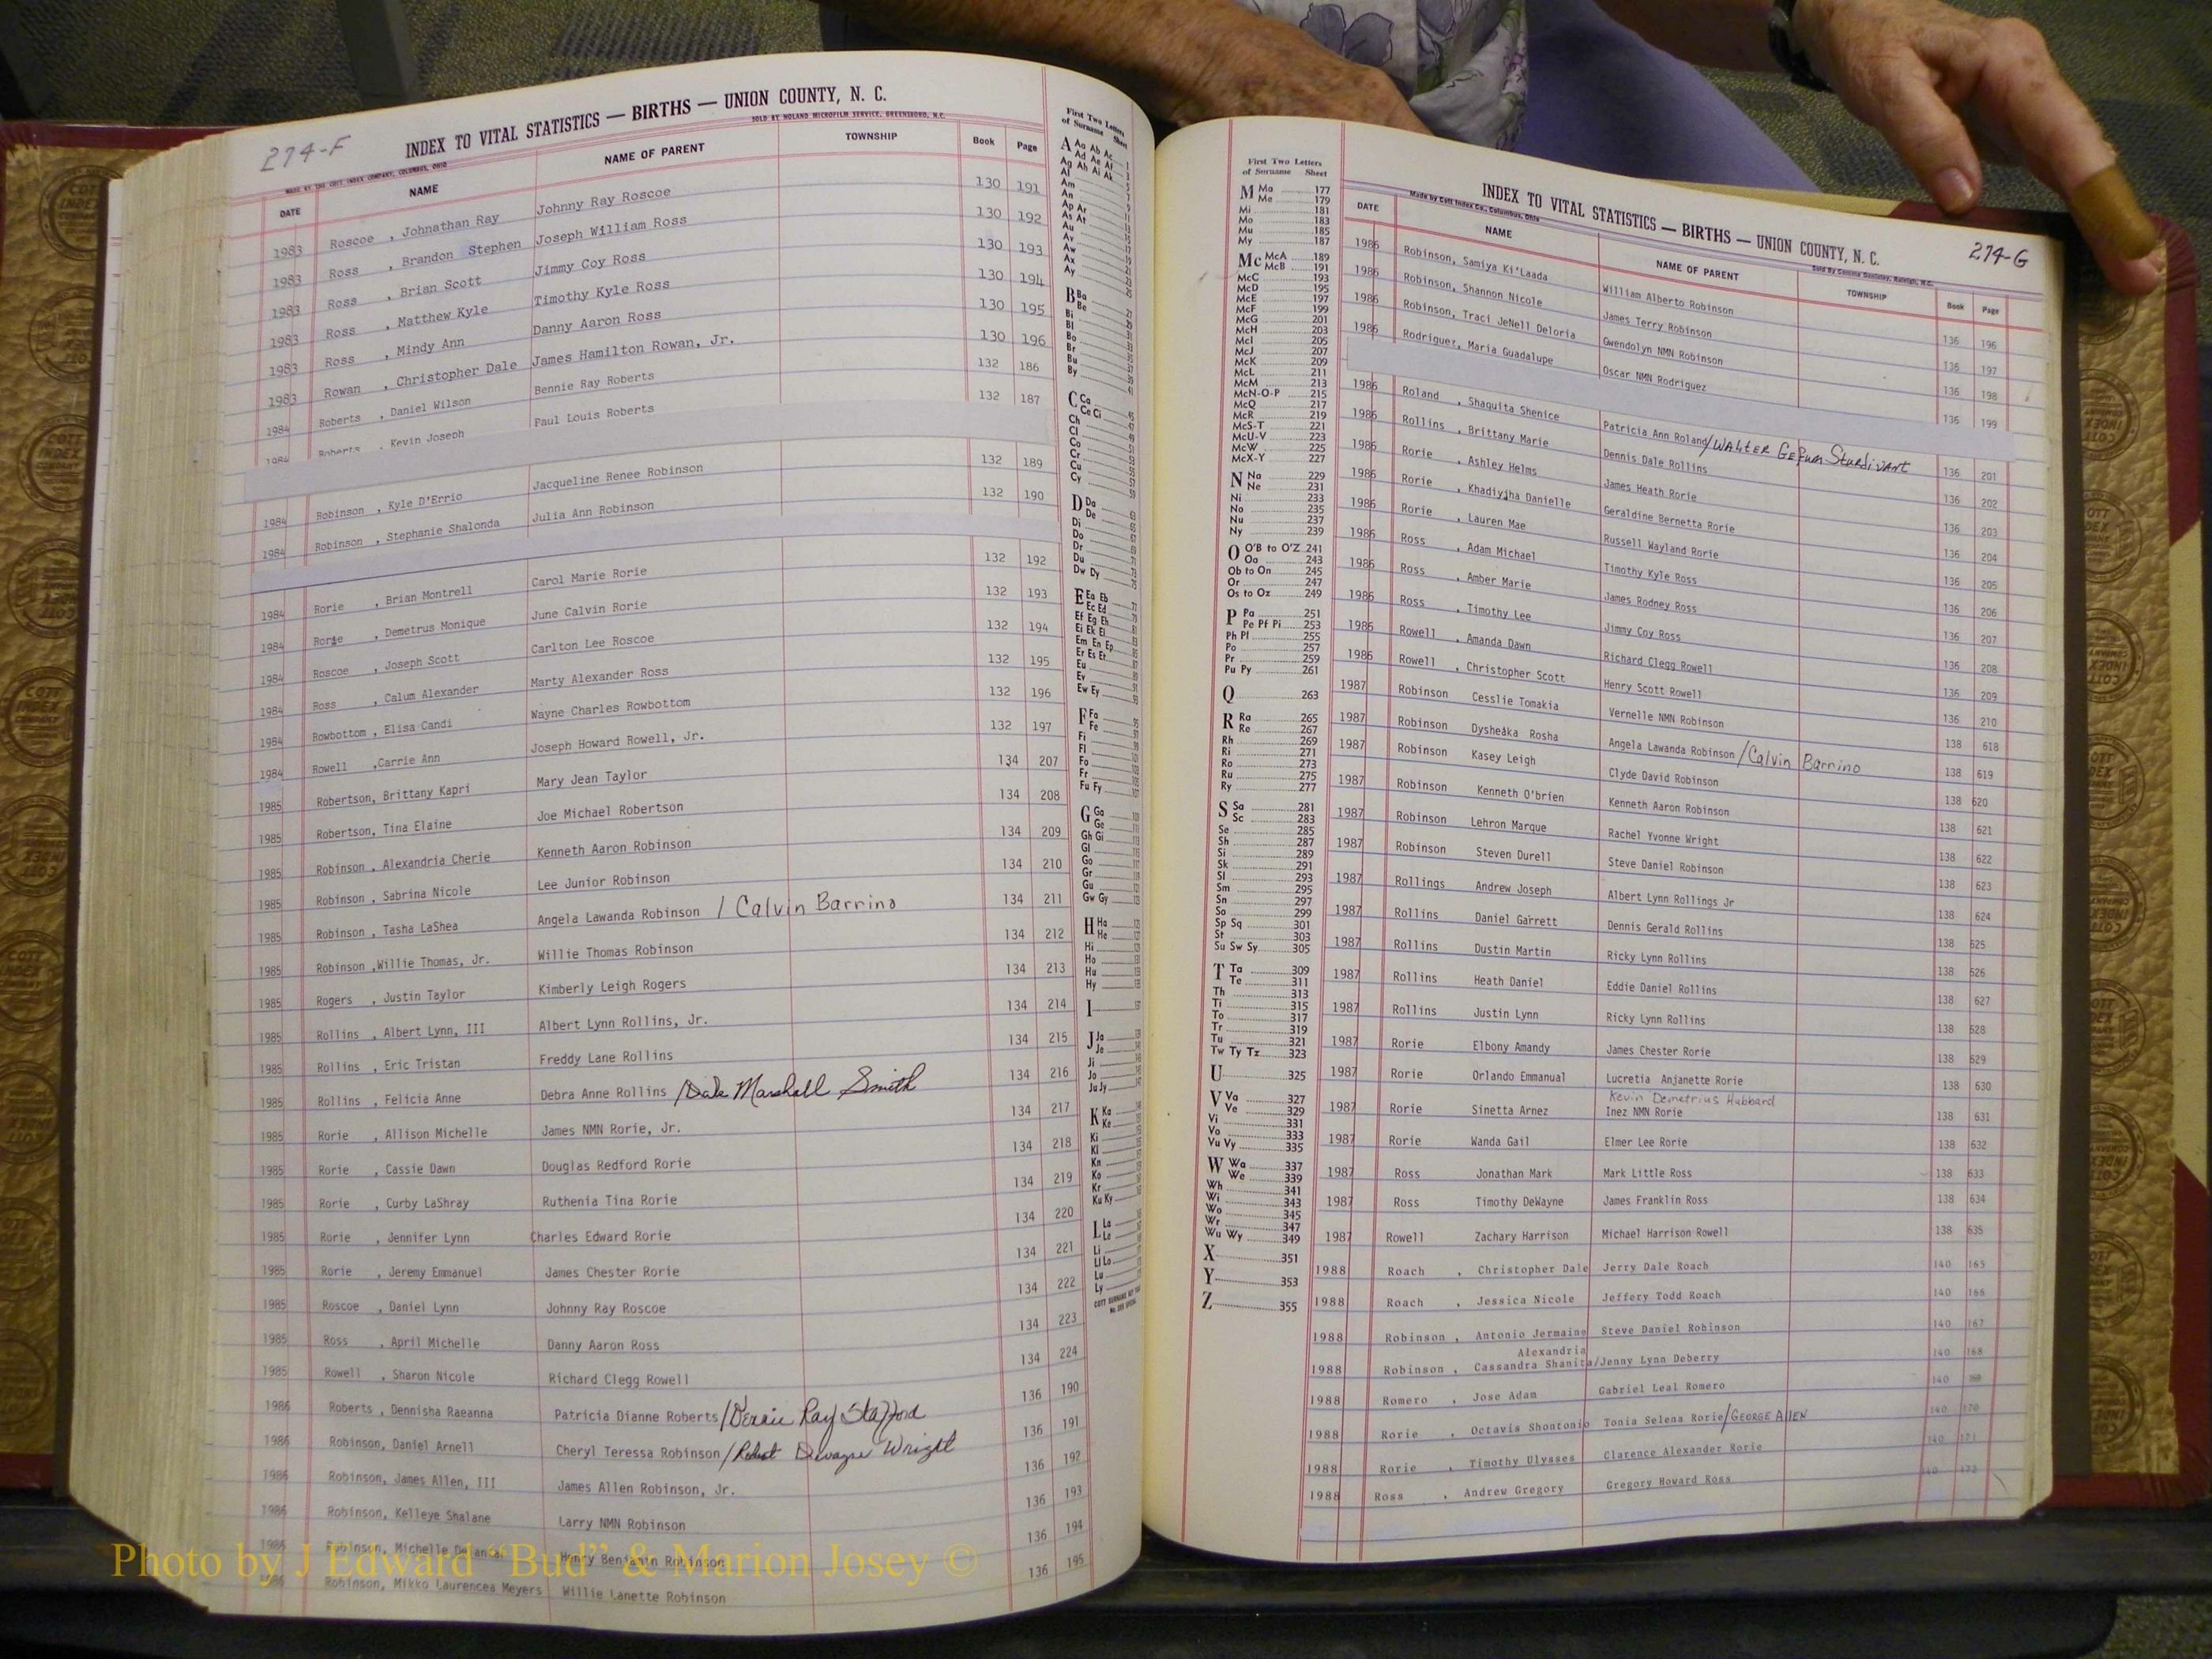 274-F
INDEX TO VITAL STATISTICS — BIRTHS — UNION COUNTY, N. C.
MADE BY THE COTT INDEX COMPANY, COLUMBUS, OHIO
SOLD BY NOLAND MICROFILM SERVICE, GREENSBORO, N.C.
DATE NAME NAME OF PARENT TOWNSHIP Book Page
1983 Roscoe , Johnathan Ray Johnny Ray Roscoe 130 191
1983 Ross , Brandon Stephen Joseph William Ross 130 192
1983 Ross , Brian Scott Jimmy Coy Ross 130 193
1983 Ross , Matthew Kyle Timothy Kyle Ross 130 194
1983 Ross , Mindy Ann Danny Aaron Ross 130 195
1983 Rowan , Christopher Dale James Hamilton Rowan, Jr. 130 196
1984 Roberts , Daniel Wilson Bennie Ray Roberts 132 186
1984 Roberts , Kevin Joseph Paul Louis Roberts 132 187
1984 Robinson , Kyle D'Errio Jacqueline Renee Robinson 132 189
1984 Robinson , Stephanie Shalonda Julia Ann Robinson 132 190
1984 Rorie , Brian Montrell Carol Marie Rorie 132 192
1984 Rorie , Demetrus Monique June Calvin Rorie 132 193
1984 Roscoe , Joseph Scott Carlton Lee Roscoe 132 194
1984 Ross , Calum Alexander Marty Alexander Ross 132 195
1984 Rowbottom , Elisa Candi Wayne Charles Rowbottom 132 196
1984 Rowell ,Carrie Ann Joseph Howard Rowell, Jr. 132 197
1985 Robertson, Brittany Kapri Mary Jean Taylor 134 207
1985 Robertson, Tina Elaine Joe Michael Robertson 134 208
1985 Robinson , Alexandria Cherie Kenneth Aaron Robinson 134 209
1985 Robinson , Sabrina Nicole Lee Junior Robinson 134 210
1985 Robinson , Tasha LaShea Angela Lawanda Robinson / Calvin Barrino 134 211
1985 Robinson ,Willie Thomas, Jr. Willie Thomas Robinson 134 212
1985 Rogers , Justin Taylor Kimberly Leigh Rogers 134 213
1985 Rollins , Albert Lynn, III Albert Lynn Rollins, Jr. 134 214
1985 Rollins , Eric Tristan Freddy Lane Rollins 134 215
1985 Rollins , Felicia Anne Debra Anne Rollins /Dale Marshall Smith 134 216
1985 Rorie , Allison Michelle James NMN Rorie, Jr. 134 217
1985 Rorie , Cassie Dawn Douglas Redford Rorie 134 218
1985 Rorie , Curby LaShray Ruthenia Tina Rorie 134 219
1985 Rorie , Jennifer Lynn Charles Edward Rorie 134 220
1985 Rorie , Jeremy Emmanuel James Chester Rorie 134 221
1985 Roscoe , Daniel Lynn Johnny Ray Roscoe 134 222
1985 Ross , April Michelle Danny Aaron Ross 134 223
1985 Rowell , Sharon Nicole Richard Clegg Rowell 134 224
1986 Roberts , Dennisha Raeanna Patricia Dianne Roberts/ Ray Stafford 136 190
1986 Robinson, Daniel Arnell Cheryl Teressa Robinson/Robert Dwayne Wright 136 191
1986 Robinson, James Allen, III James Allen Robinson, Jr. 136 192
1986 Robinson, Kelleye Shalane Larry NMN Robinson 136 193
1986 Robinson, Michelle Henry Benjamin Robinson 136 194
1986 Robinson, Mikko Laurencea Meyers Willie Lanette Robinson 136 195
First Two Letters
of Surname Sheet
A Aa Ab Ac
Ad Ae Af
Ag Ah Ai Ak
Al
Am
An
Ap Ar
As At
Au
Av
Aw
Ax
Ay
B Ba
Be
Bi
Bl
Bo
Br
Bu
By
C Ca
Ce Ci
Ch
Cl
Co
Cr
Cu
Cy
D Da
De
Di
Do
Dr
Du
Dw Dy
E Ea Eb
Ec Ed
Ef Eg Eh
Ei Ek El
Em En Ep
Er Es Et
Eu
Ev
Ew Ey
F Fa
Fe
Fi
Fl
Fo
Fr
Fu Fy
G Ga
Ge
Gh Gi
Gl
Go
Gr
Gu
Gw Gy
H Ha
He
Hi
Ho
Hu
Hy
I
J Ja
Je
Ji
Jo
Ju Jy
K Ka
Ke
Ki
Kl
Kn
Ko
Kr
Ku Ky
L La
Le
Li
Ll Lo
Lu
Ly
First Two Letters
of Surname Sheet
M Ma 177
Me 179
Mi 181
Mo 183
Mu 185
My 187
Mc McA 189
McB 191
McC 193
McD 195
McE 197
McF 199
McG 201
McH 203
McI 205
McJ 207
McK 209
McL 211
McM 213
McN-O-P 215
McQ 217
McR 219
McS-T 221
McU-V 223
McW 225
McX-Y 227
N Na 229
Ne 231
Ni 233
No 235
Nu 237
Ny 239
O O'B to O'Z 241
Oa 243
Ob to On 245
Or 247
Os to Oz 249
P Pa 251
Pe Pf Pi 253
Ph Pl 255
Po 257
Pr 259
Pu Py 261
Q 263
R Ra 265
Re 267
Rh 269
Ri 271
Ro 273
Ru 275
Ry 277
S Sa 281
Sc 283
Se 285
Sh 287
Si 289
Sk 291
Sl 293
Sm 295
Sn 297
So 299
Sp Sq 301
St 303
Su Sw Sy 305
T Ta 309
Te 311
Th 313
Ti 315
To 317
Tr 319
Tu 321
Tw Ty Tz 323
U 325
V Va 327
Ve 329
Vi 331
Vo 333
Vu Vy 335
W Wa 337
We 339
Wh 341
Wi 343
Wo 345
Wr 347
Wu Wy 349
X 351
Y 353
Z 355
274-G
INDEX TO VITAL STATISTICS — BIRTHS — UNION COUNTY, N. C.
Made by Cott Index Co., Columbus, Ohio
DATE NAME NAME OF PARENT TOWNSHIP Book Page
1986 Robinson, Samiya Ki'Laada William Alberto Robinson 136 196
1986 Robinson, Shannon Nicole James Terry Robinson 136 197
1986 Robinson, Traci JeNell Deloria Gwendolyn NMN Robinson 136 198
1986 Rodriguez, Maria Guadalupe Oscar NMN Rodriguez 136 199
1986 Roland , Shaquita Shenice Patricia Ann Roland/Walter Sturdivant 136 201
1986 Rollins , Brittany Marie Dennis Dale Rollins 136 202
1986 Rorie , Ashley Helms James Heath Rorie 136 203
1986 Rorie , Khadiyjha Danielle Geraldine Bernetta Rorie 136 204
1986 Rorie , Lauren Mae Russell Wayland Rorie 136 205
1986 Ross , Adam Michael Timothy Kyle Ross 136 206
1986 Ross , Amber Marie James Rodney Ross 136 207
1986 Ross , Timothy Lee Jimmy Coy Ross 136 208
1986 Rowell , Amanda Dawn Richard Clegg Rowell 136 209
1986 Rowell , Christopher Scott Henry Scott Rowell 136 210
1987 Robinson Cesslie Tomakia Vernelle NMN Robinson 138 618
1987 Robinson Dysheaka Rosha Angela Lawanda Robinson/Calvin Barrino 138 619
1987 Robinson Kasey Leigh Clyde David Robinson 138 620
1987 Robinson Kenneth O'brien Kenneth Aaron Robinson 138 621
1987 Robinson Lehron Marque Rachel Yvonne Wright 138 622
1987 Robinson Steven Durell Steve Daniel Robinson 138 623
1987 Rollings Andrew Joseph Albert Lynn Rollings Jr 138 624
1987 Rollins Daniel Garrett Dennis Gerald Rollins 138 625
1987 Rollins Dustin Martin Ricky Lynn Rollins 138 626
1987 Rollins Heath Daniel Eddie Daniel Rollins 138 627
1987 Rollins Justin Lynn Ricky Lynn Rollins 138 628
1987 Rorie Elbony Amandy James Chester Rorie 138 629
1987 Rorie Orlando Emmanual Lucretia Anjanette Rorie 138 630
Kevin Demetrius Hubbard
1987 Rorie Sinetta Arnez Inez NMN Rorie 138 631
1987 Rorie Wanda Gail Elmer Lee Rorie 138 632
1987 Ross Jonathan Mark Mark Little Ross 138 633
1987 Ross Timothy DeWayne James Franklin Ross 138 634
1987 Rowell Zachary Harrison Michael Harrison Rowell 138 635
1988 Roach , Christopher Dale Jerry Dale Roach 140 165
1988 Roach , Jessica Nicole Jeffery Todd Roach 140 166
1988 Robinson , Antonio Jermaine Steve Daniel Robinson 140 167
Alexandria
1988 Robinson , Cassandra Shanita/Jenny Lynn Deberry 140 168
1988 Romero , Jose Adam Gabriel Leal Romero 140 169
1988 Rorie , Octavis Shontonio Tonia Selena Rorie/GEORGE ALLEN 140 170
1988 Rorie , Timothy Ulysses Clarence Alexander Rorie 140 171
1988 Ross , Andrew Gregory Gregory Howard Ross 140 172
Photo by J Edward “Bud” & Marion Josey ©